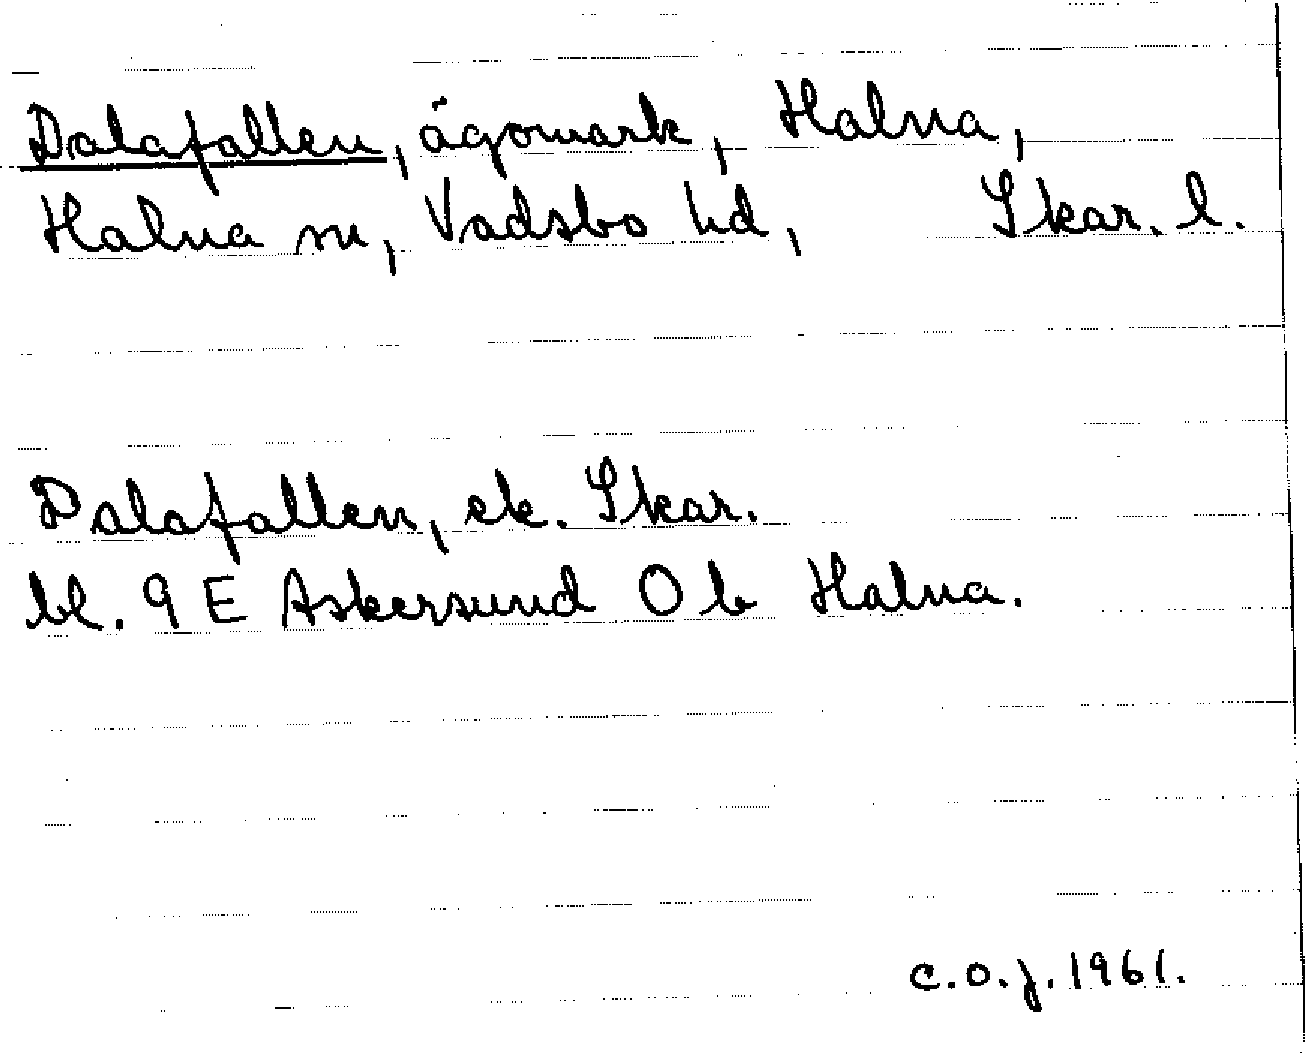 Dalafallen, ägomark, Halna,
Halna sn, Vadsbo hd, Skar. l.
Dalafallen, ek. Skar.
bl. 9 E Askersund O b Halna.
C.O.J. 1961.